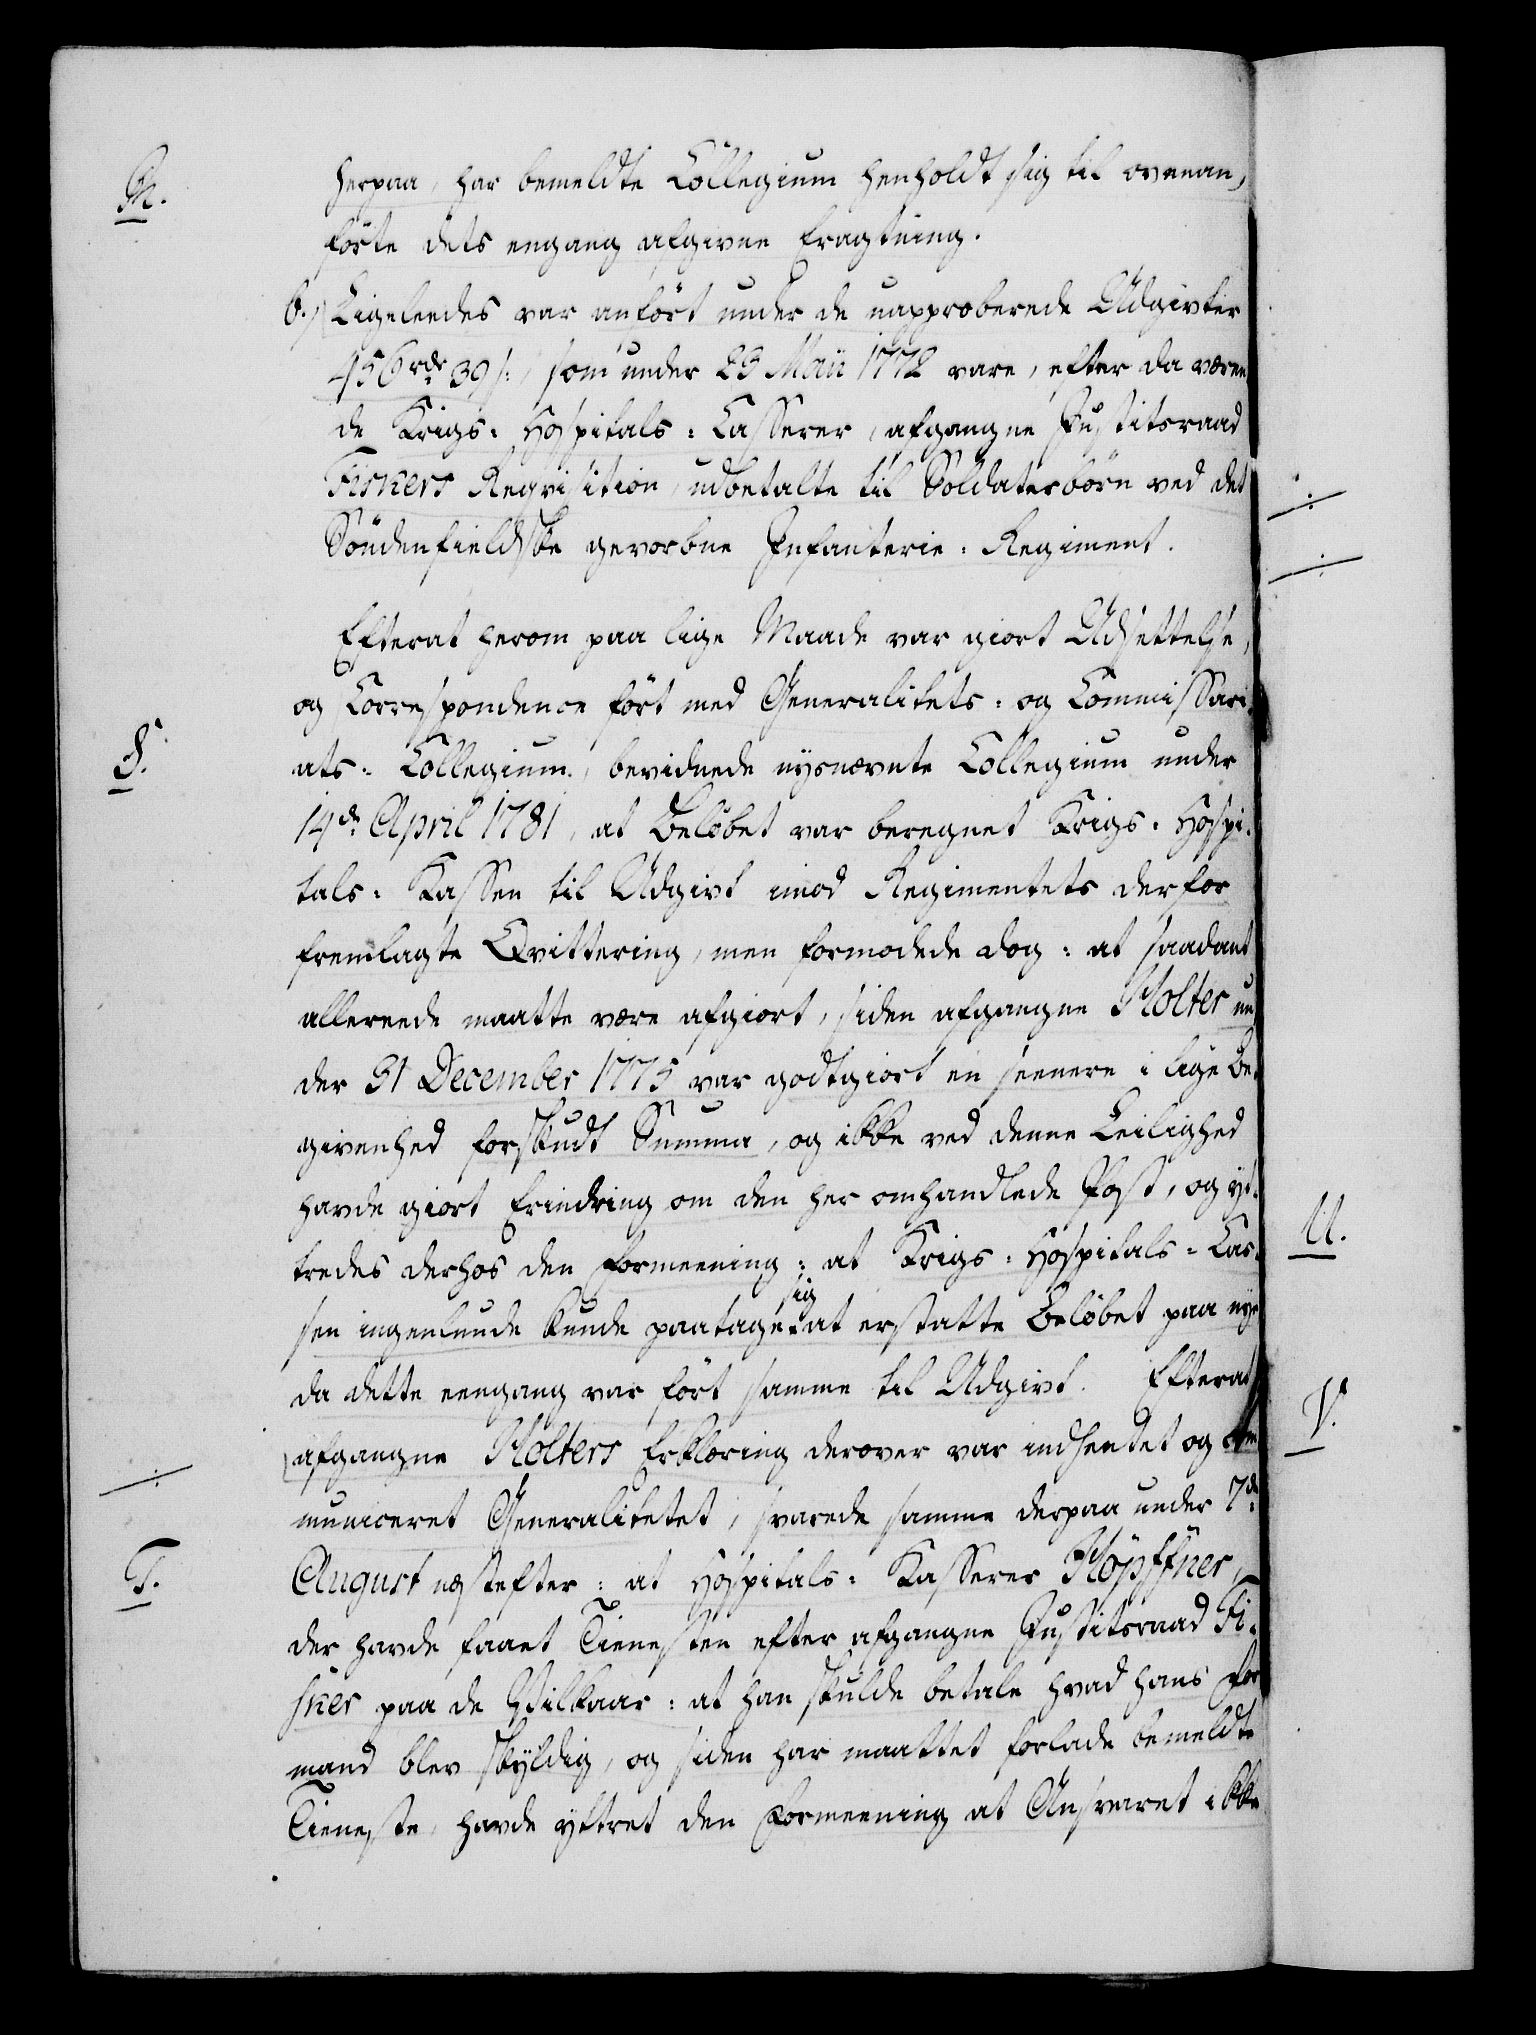 R.
herpaa, har bemeldte Collegium henholdt sig til ovenan,
förte dets engang afgivne Eragtning.
6.) Ligeleedes var anfört under de uapproberede Udgivter
456 rdr 39 s:, som under 23 Maii 1772 vare, efter da væren
de Krigs: Hospitals: Casserer, afgangne Justitsraad
Fiskers Reqvisition, udbetalte til Soldaterbörn ved det
Söndenfieldske gevorbne Infanterie: Regiment.
Efterat herom paa lige Maade var giort Udsettelse,
og Correspondence fört med Generalitets: og Commissari,
S.
ats: Collegium, bevidnede nysnævnte Collegium under
14de April 1781, at Belöbet var beregnet Krigs: Hospi,
tals: Kassen til Udgivt imod Regimentets derfor
fremlagte Qvittering, men formodede dog: at saadant
allereede maatte være afgiort, siden afgangne Holter un
der 31 December 1775 var godtgiort en seenere i lige Be,
givenhed forskudt Summa, og ikke ved denne Leilighed
havde giort Erindring om den her omhandlede Post, og yt,
tredes derhos den Formeening: at Krigs: Hospitals: Cas,
sig
sen ingenlunde kunde paatage at erstatte Belöbet paa nye
da dette eengang var fört samme til Udgivt. Efterat
afgangne Holters Erklæring derover var indhentet og com
municeret Generalitetet, svarede samme derpaa under 7de
T.
August næstefter: at Hospitals: Kasserer Höpffner,
der havde faaet Tienesten efter afgangne Justitsraad Fi,
sker paa de Vilkaar: at han skulde betale hvad hans For
mand blev skyldig, og siden har maattet forlade bemeldte
Tieneste, havde yttret den Formeening at Ansvaret ikke
U.
V.